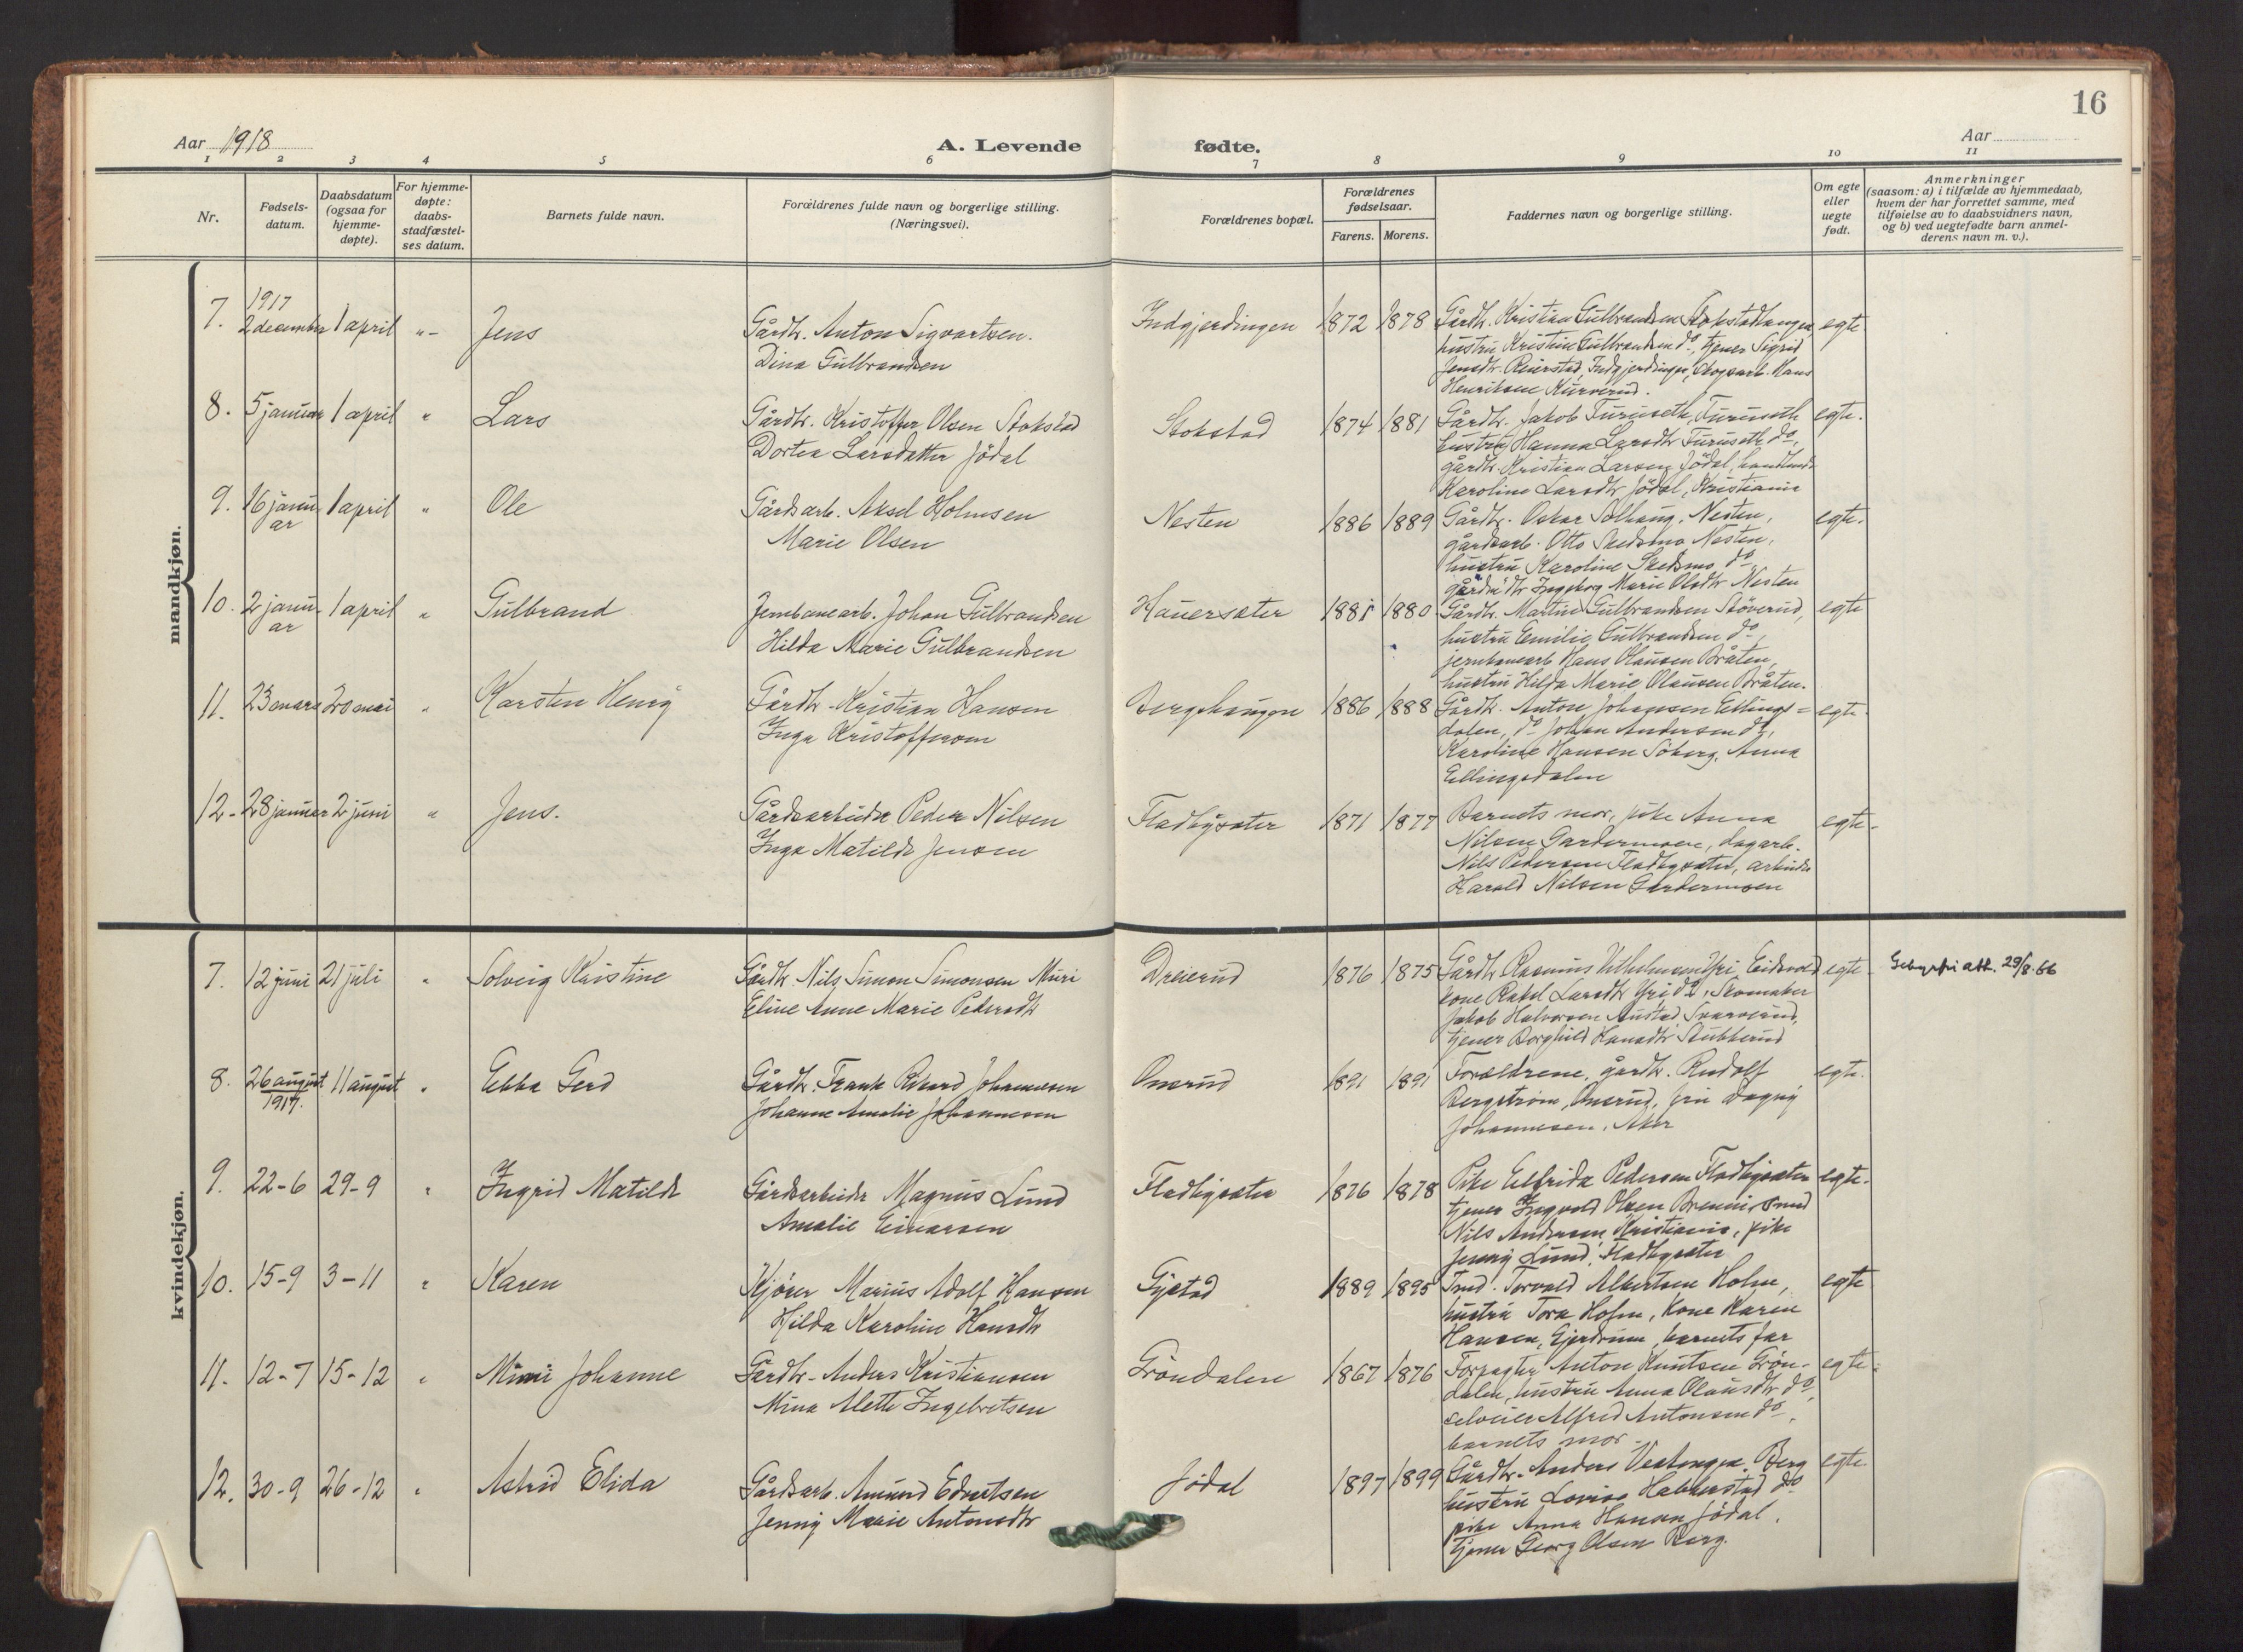 16
Aar 1918
A. Levende fødte.
Aar
1 2 3 4 5 6 7 8 9 10 11
Nr.
Fødsels-
datum.
Daabsdatum
(ogsaa for
hjemme-
døpte).
For hjemme-
døpte:
daabs-
stadfæstel-
ses datum.
Barnets fulde navn.
Forældrenes fulde navn og borgerlige stilling.
(Næringsvei).
Forældrenes bopæl.
Forældrenes
fødselsaar.
Farens. Morens.
Faddernes navn og borgerlige stilling.
Om egte
eller
uegte
født.
Anmerkninger
(saasom: a) i tilfælde av hjemmedaab,
hvem der har forrettet samme, med
tilføielse av to daabsvidners navn,
og b) ved uegtefødte barn anmel-
derens navn m. v.).
mandkjøn.
7. 1917
2 december 1 april "- Jens
Gårdbr. Anton Sigvartsen.
Dina Gulbrandsen
Indgjerdingen 1872 1878
Gårdb. Kristian Gulbrandsen
hustru Kristine Gulbrandsen do, tjener Sigrid
Jensdtr. Reierstad, Indgjerdingen, Skogsarb. Hans
Henriksen Kurverud.
egte
8. 5 januar 1 april " Lars
Gårdbr. Kristoffer Olsen Stokstad
Dortea Larsdatter Jödal
Stokstad 1874 1881
Gårdbr. Jakob Furuseth, Furuseth
hustru Hanna Larsdtr Furuseth do,
gårdbr. Kristian Larsen Jödal,
Karoline Larsdtr Jödal, Kristiania
egte.
9. 16 janu-
ar 1 april " Ole
Gårdsarb. Aksel Holmsen
Marie Olsen
Nesten 1886 1889
Gårdbr. Oskar Solhaug, Nesten,
gårdsarb. Otto Skedsmo Nesten,
hustru Karoline Skedsmo, do
Ingeborg Marie Olsdtr Nesten
egte.
10. 2 janu-
ar 1 april " Gulbrand
Jernbanearb. Johan Gulbrandsen
Hilda Marie Gulbrandsen
Hauersæter 1881 1880
Gårdbr. Martin Gulbrandsen Stöverud,
hustru Emilie Gulbrandsen do,
jernbanearb Hans Olausen Bråten,
hustru Hilda Marie Olausen Bråten.
egte
11. 23 mars 20 mai " Karsten Henry
Gårdbr. Kristian Hansen
Inga Kristoffersen
Bergshaugen 1886 1888
Gårdb. Anton Johansen Ellings=
dalen, do Johan Andersen do,
Karoline Hansen Söberg, Anna
Ellingsdalen
egte.
12. 28 januar 2 juni " Jens.
Gårdsarbeider Peder Nilsen
Inga Matilde Jensen
Fladbysæter 1871 1877
Barnets mor, pike Anna
Nilsen Gardermoen, dagarb.
Nils Pedersen Fladbysæter, arbeider
Harald Nilsen Gardermoen
egte.
kvindekjøn.
7. 12 juni 21 juli " Solveig Kristine
Gårdbr Nils Simon Simonsen Muri
Eline Anne Marie Pedersdtr
Dreierud 1876 1875
Gårdb Rasmus Vilhelmsen Yri, Eidsvold
kone Rakel Larsdtr Yri do, Skomaker
Jakob Halvorsen Austad
tjener Borghild Hansdtr Stubberud
egte
Gebyrfri att. 29/8. 66
8. 26 august
1917. 11 august " Ebba Gerd
Gårdbr. Frank Rikard Johannesen
Johanne Amalie Johannesen
Onsrud 1891 1891
Forældrene, gårdbr. Rudolf
Bergström, Onsrud, fru Dagny
Johannesen, Aker
egte.
9. 22-6 29-9 " Ingrid Matilde
Gårdsarbeider Magnus Lund
Amalie Einarsen
Fladbysæter 1876 1878
Pike Elfrida Pedersen Fladbysæter
tjener Ingvald Olsen
Nils Andersen Kristiania, pike
Jenny Lund, Fladbysæter
egte.
10. 15-9 3-11 " Karen
Kjører Marius Adolf Hansen
Hilda Karoline Hansdtr
Gystad 1889 1895
Torvald Albertsen Holm,
hustru Tora Holm, Kone Karen
Hansen, Gjerdrum, barnets far
egte
11. 12-7 15-12 " Mimi Johanne
Gårdbr. Anders Kristiansen
Mina Alette Ingebretsen
Gröndalen 1867 1876
Forpagter Anton Knutsen Grön-
dalen, hustru Anna Olausdtr do,
selveier Alfred Antonsen do,
barnets mor.
egte
12. 30-9 26-12 " Astrid Elida
Gårdsarb. Amund Edvartsen
Jenny Marie Antonsdtr
Jödal 1897 1899
Gårdbr. Anders Berg
hustru Lovise do
pike Anna Hansen Jödal,
tjener Georg Olsen Berg.
egte.